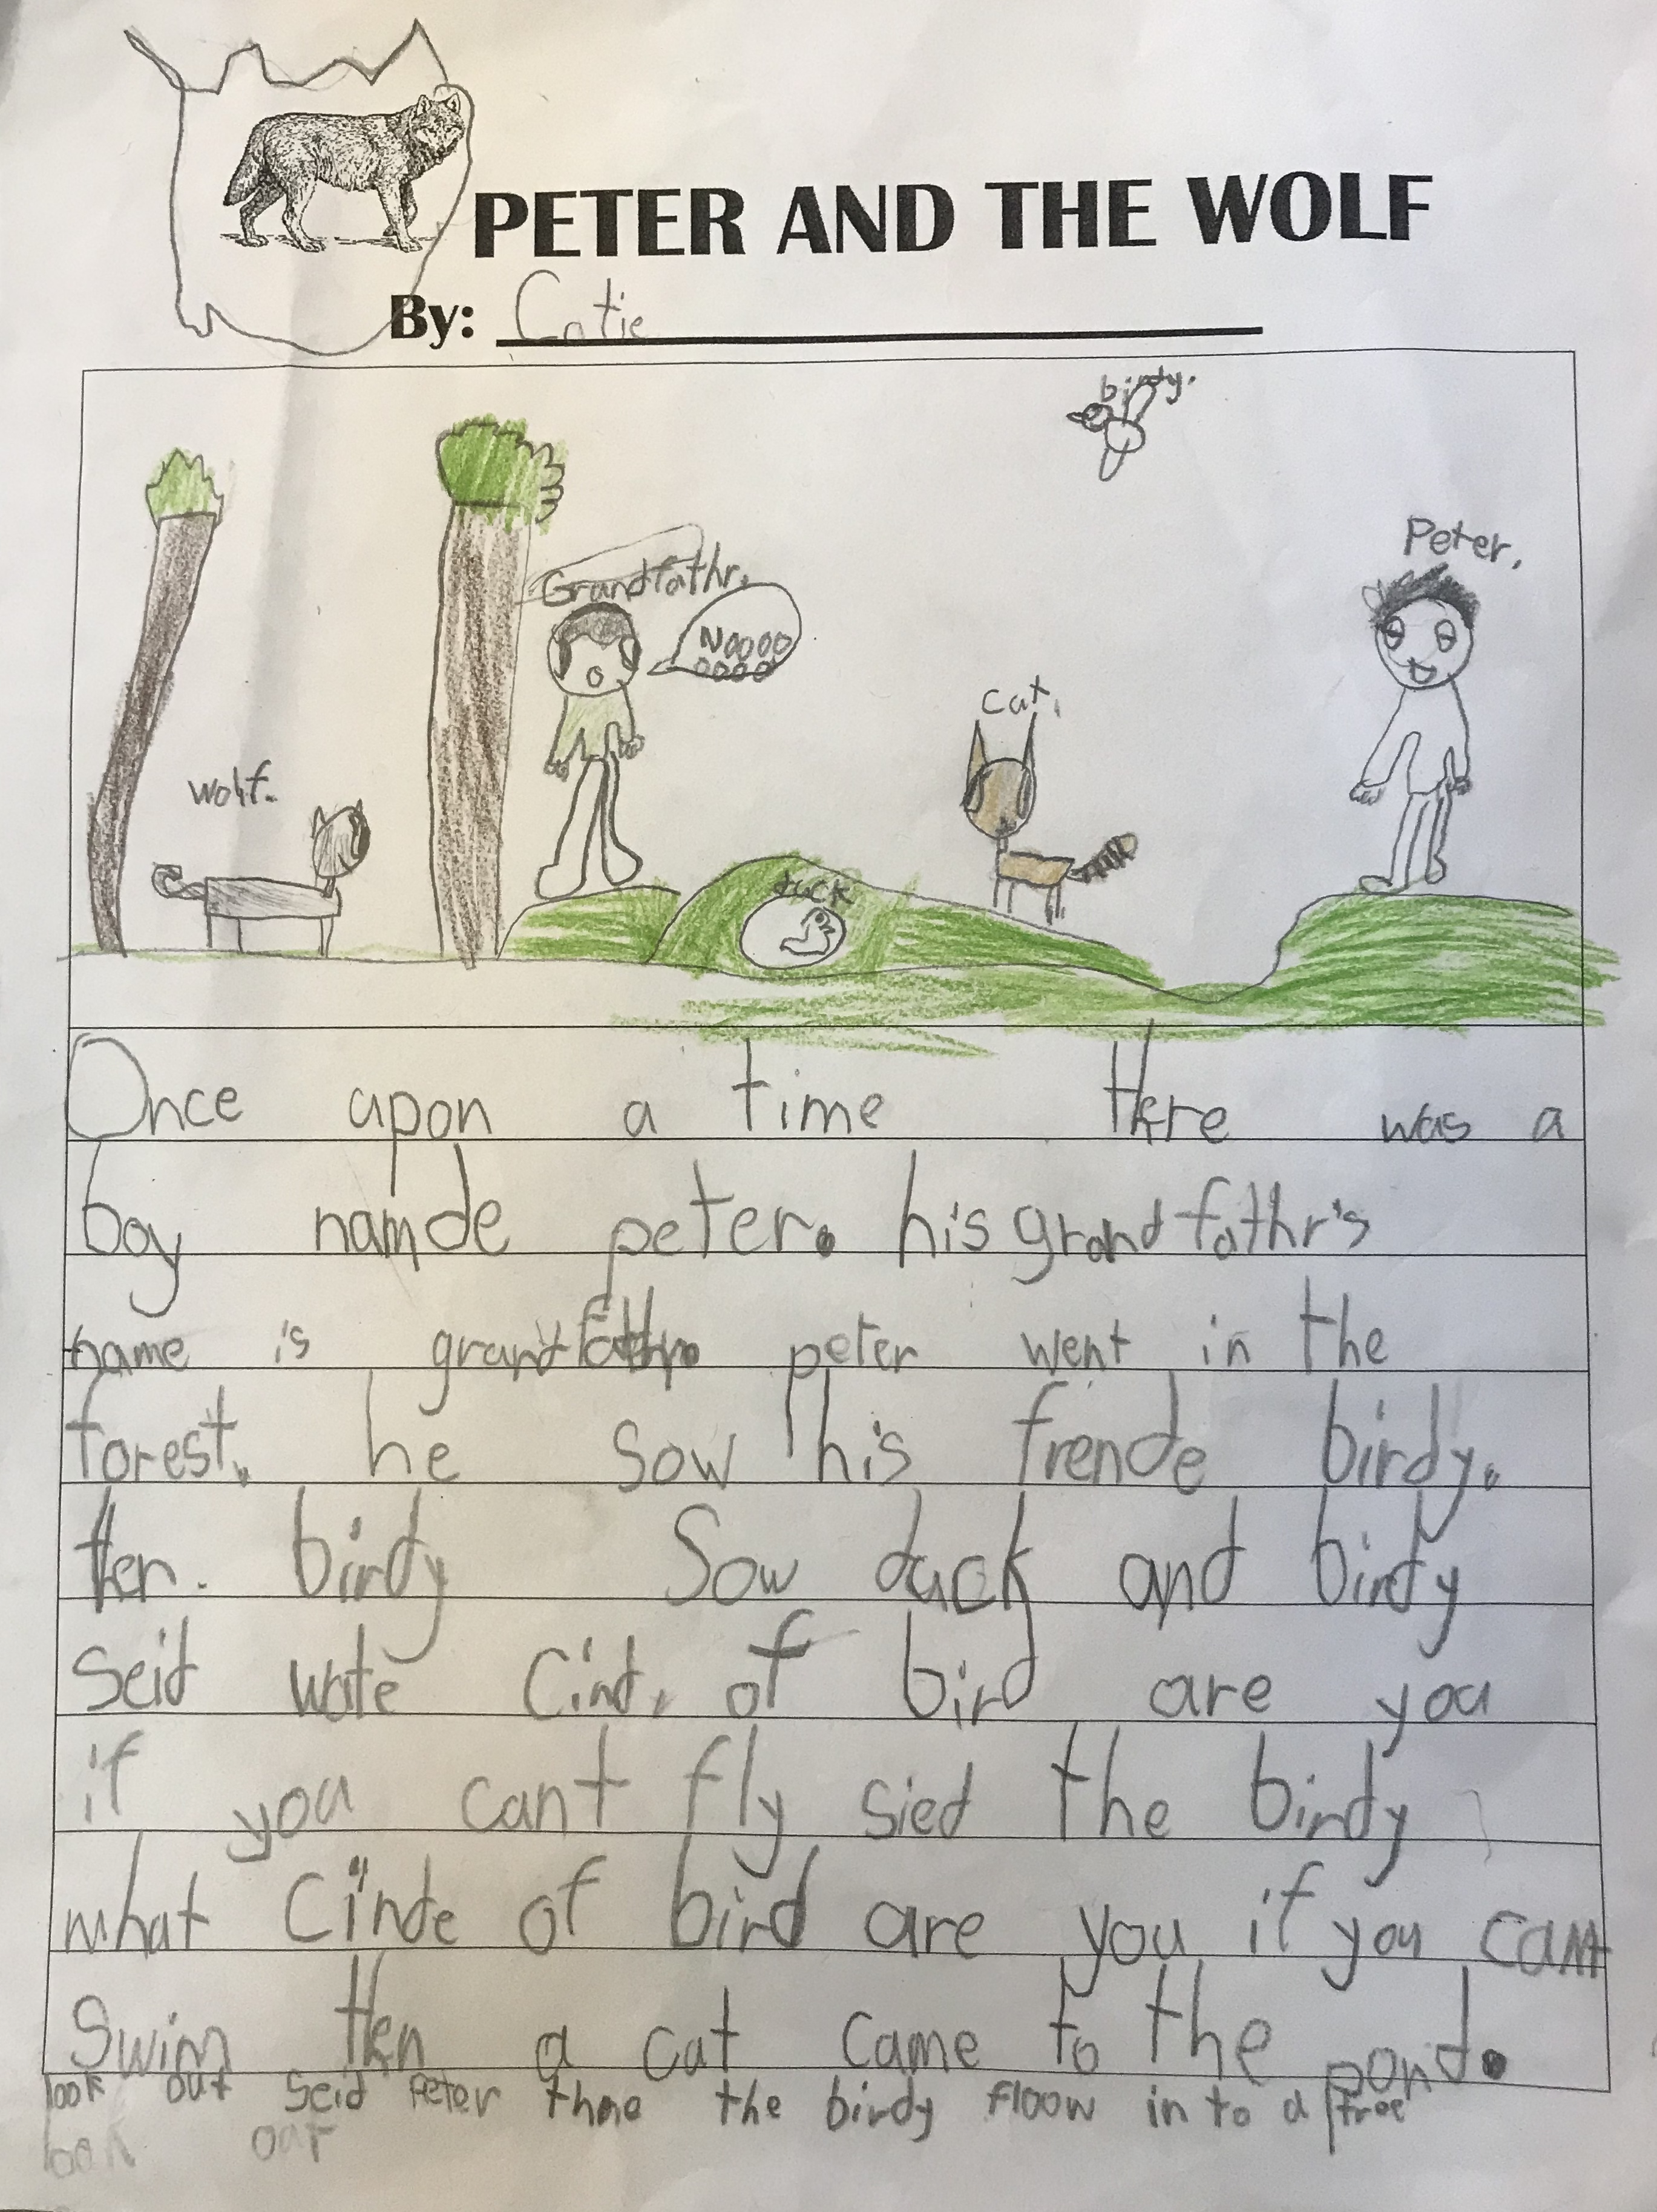 PETER AND THE WOLF
By: Catie
birdy.
Peter.
Grandfathr.
Noooo
oooo
cat.
wolf.
duck
Once upon a time there was a
boy namde peter. his grandfathr's
name is grandfathr. peter went in the
forest. he sow his frende birdy.
then. birdy Sow duck and birdy
Seid wate Cind. of bird are you
if you cant fly sied the birdy
what Cinde of bird are you if you cant
Swim then a cat came to the pond.
look out Seid Peter the birdy floow in to a tree
look out